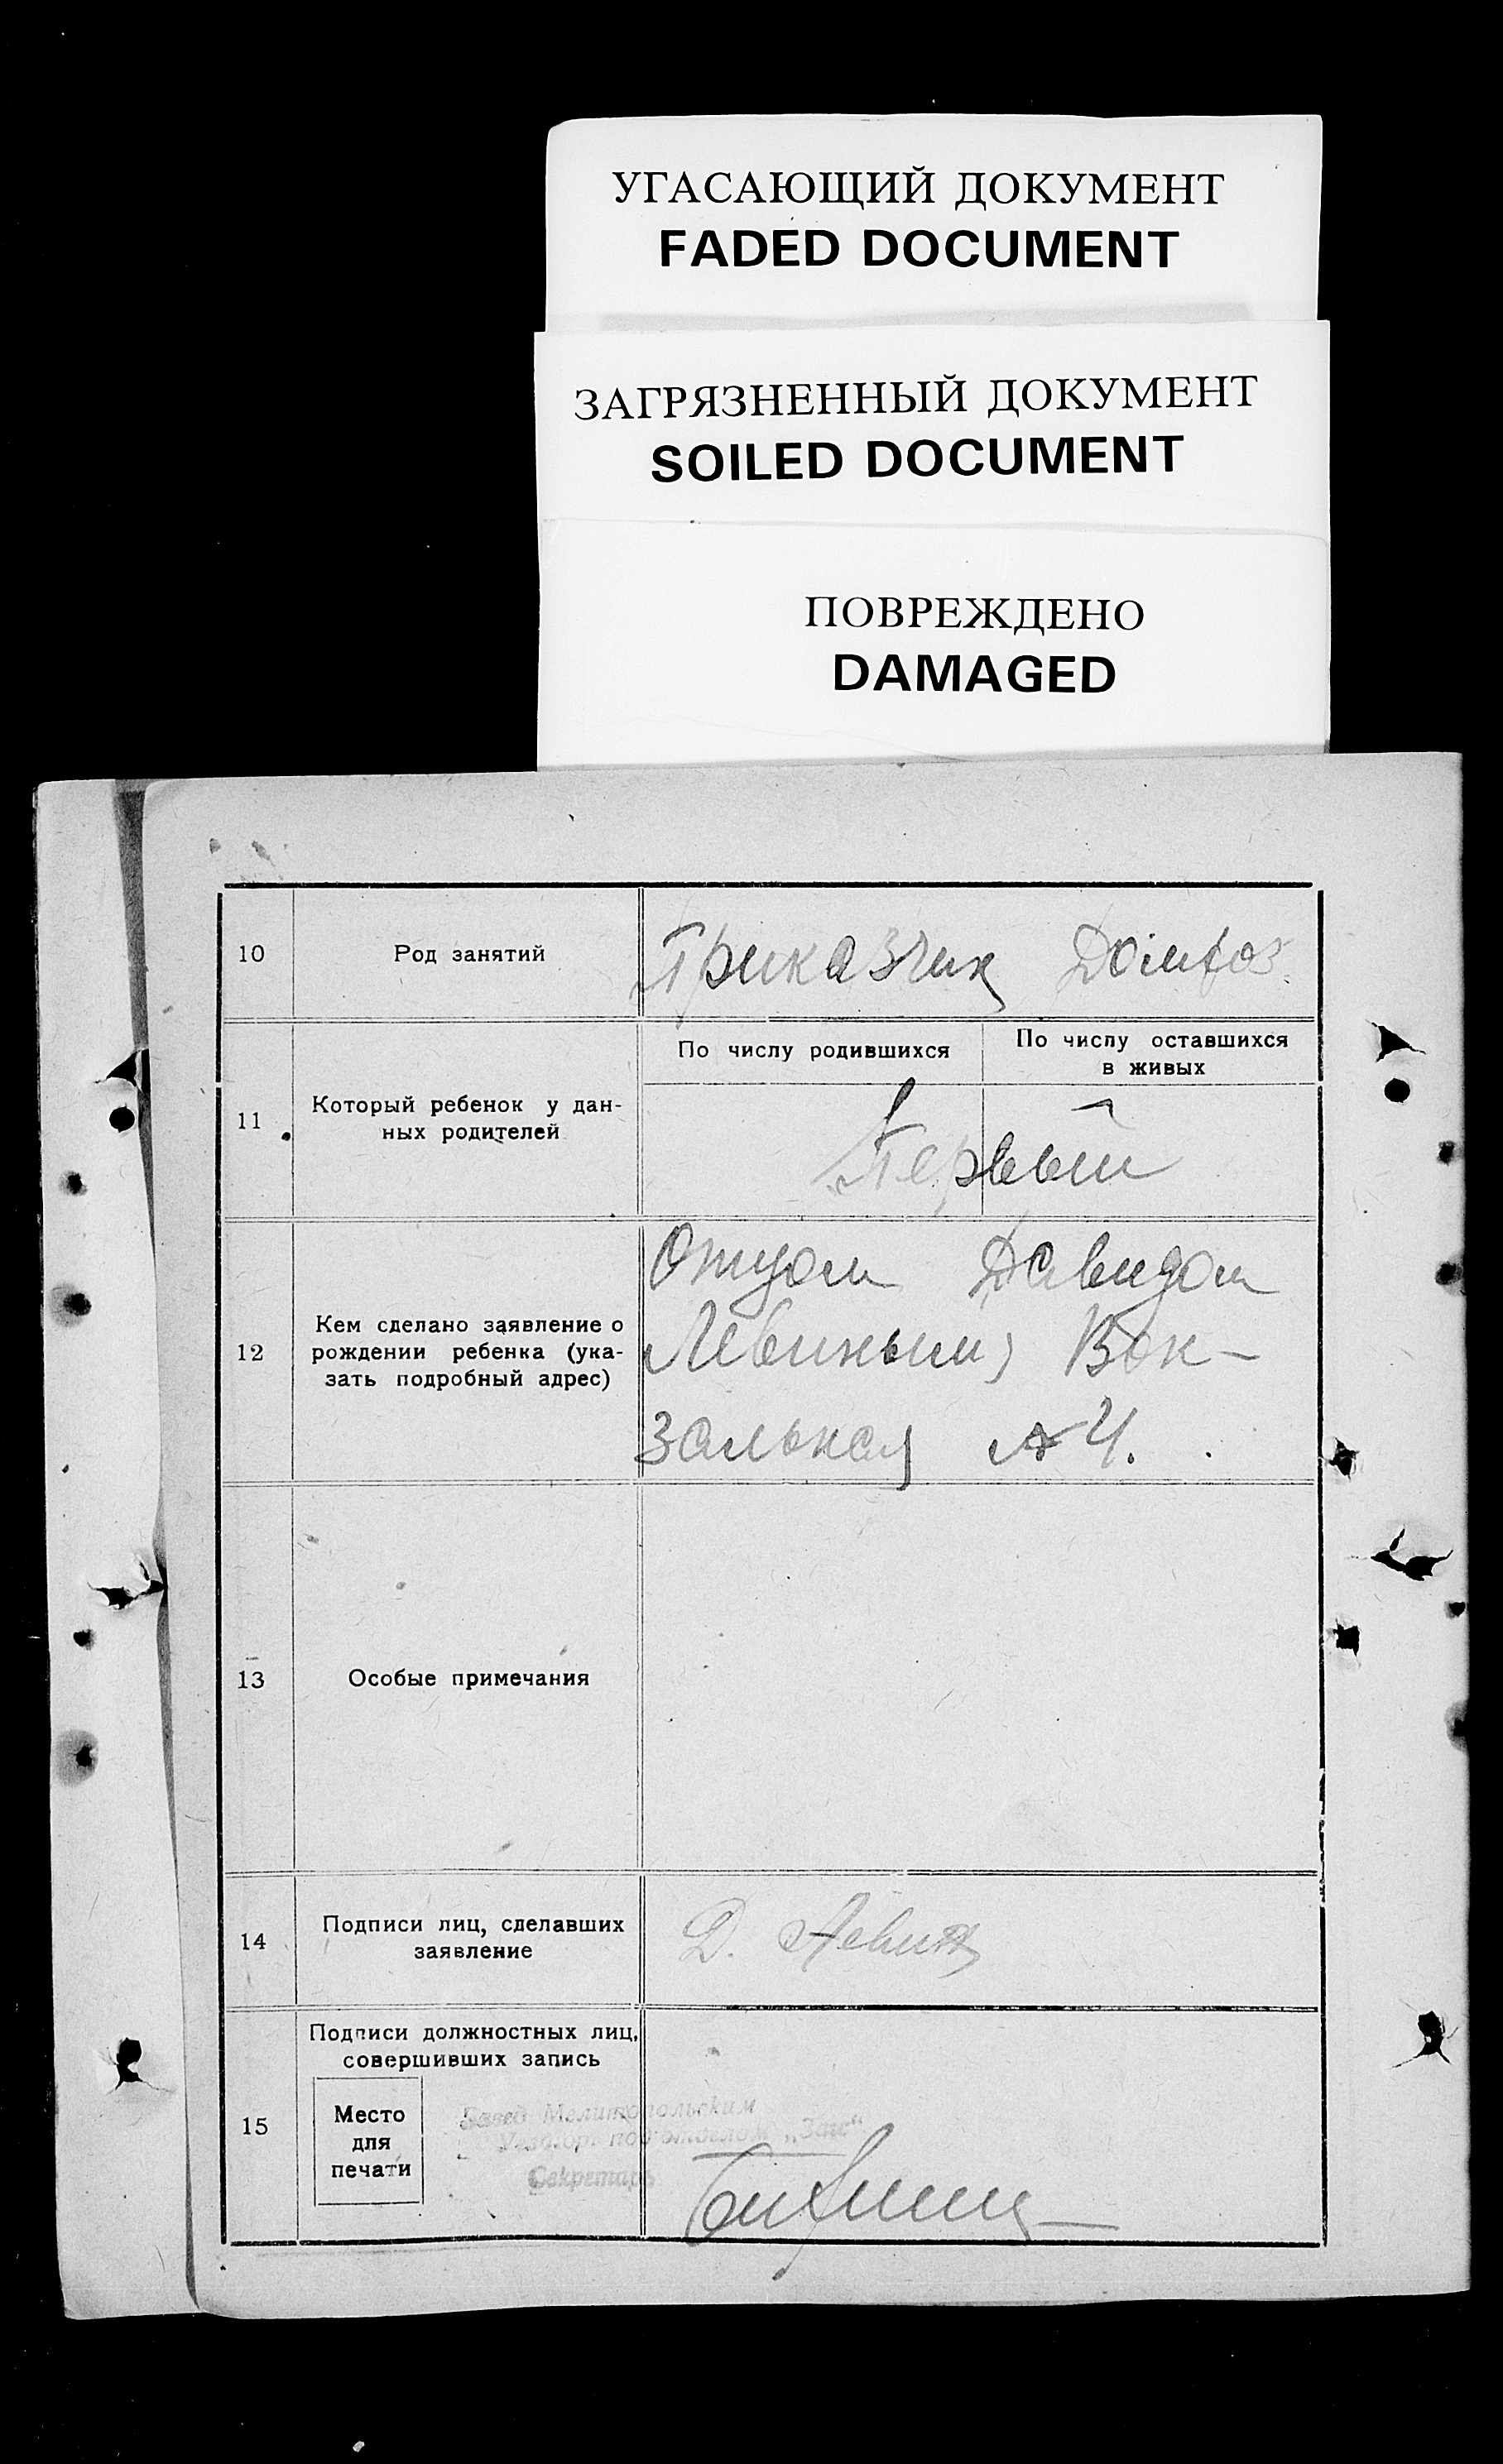 УГАСАЮЩИЙ ДОКУМЕНТ
FADED DOCUMENT
ЗАГРЯЗНЕННЫЙ ДОКУМЕНТ
SOILED DOCUMENT
ПОВРЕЖДЕНО
DAMAGED
10
Род занятий
Приказчик
11
Который ребенок у дан-
ных родителей
По числу родившихся
По числу оставшихся
в живых
Первый
12
Кем сделано заявление о
рождении ребенка (ука-
зать подробный адрес)
Отцом Давидом
Левиным Вок-
зальная
13
Особые примечания
14
Подписи лиц, сделавших
заявление
Д. Левин
15
Подписи должностных лиц,
совершивших запись
Место
для
печати
Мелитопольским
под'отделом „Загс“
Секретарь